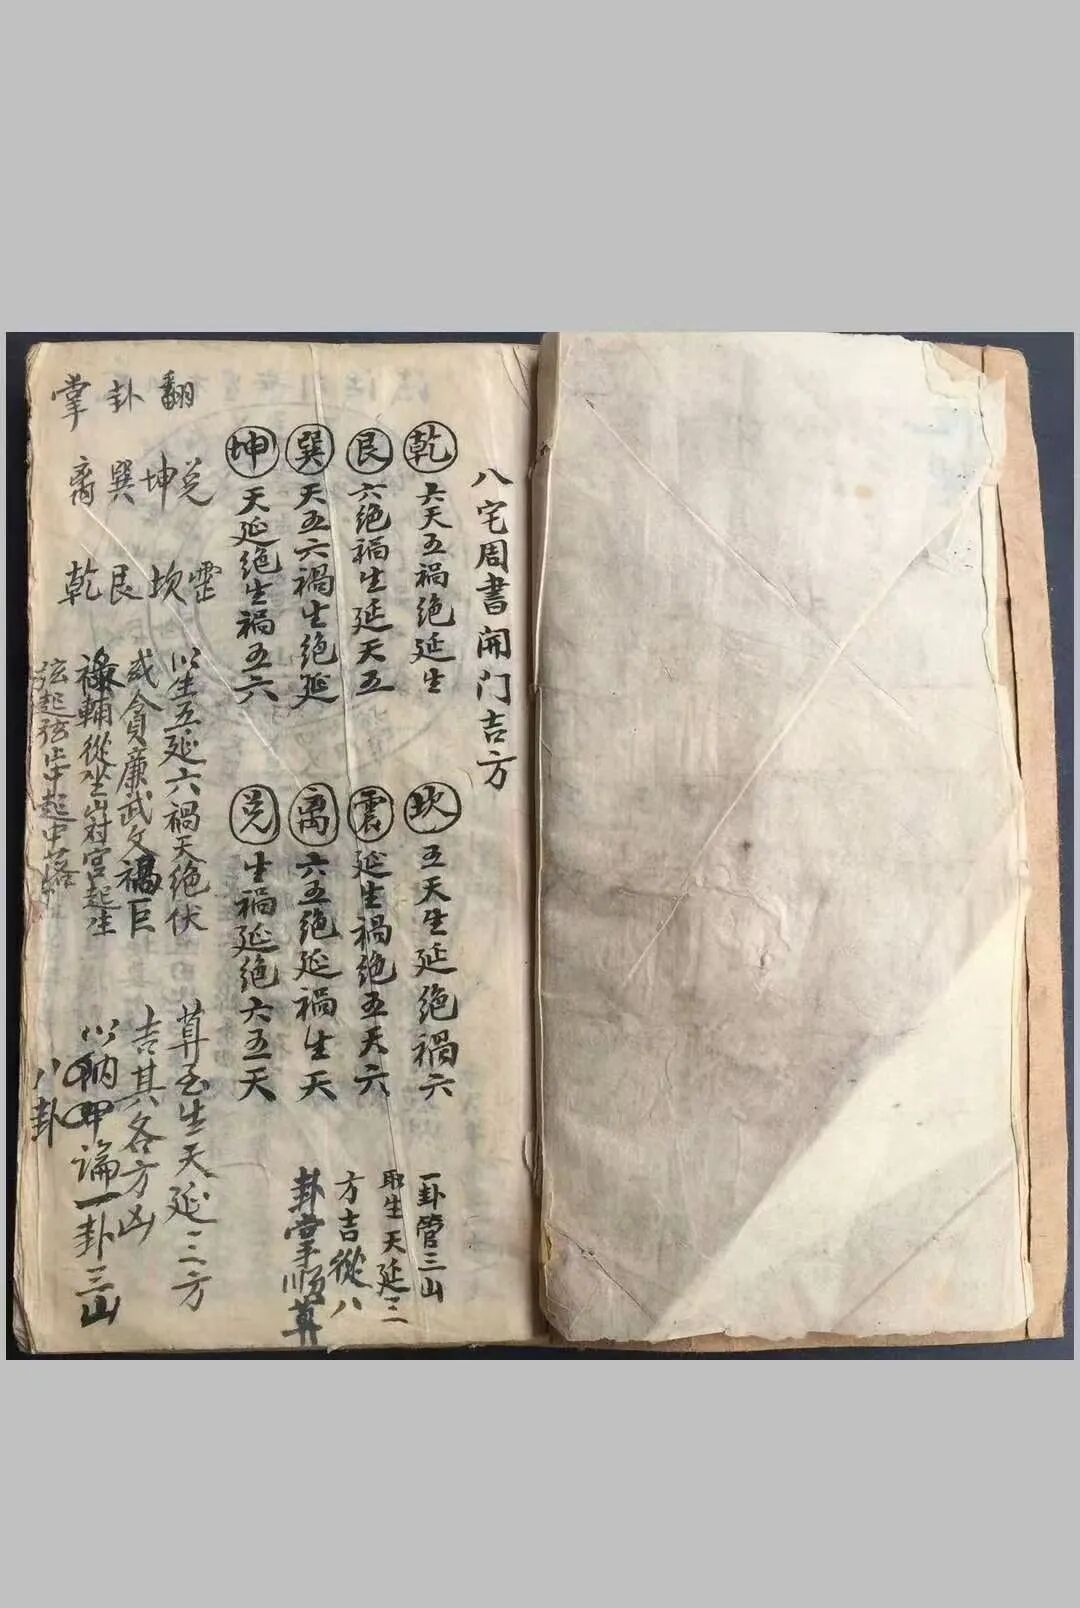 八宅周書開门吉方
乾 六天五禍绝延生
艮 六绝禍生延天五
巽 天五六禍生绝延
坤 天延绝生禍五六
坎 五天生延绝禍六
震 延生禍绝五天六
离 六五绝延禍生天
兑 生禍延绝六五天
一卦管三山
取生天延三
方吉從八
卦掌顺算
翻卦掌
兑坤巽离
坎艮乾
以生五延六禍天绝伏
貪廉武文
巨
祿輔從坐山对宫起生
起中起中落
算至生天延三方
吉其各方凶
以納甲論一卦三山
八卦